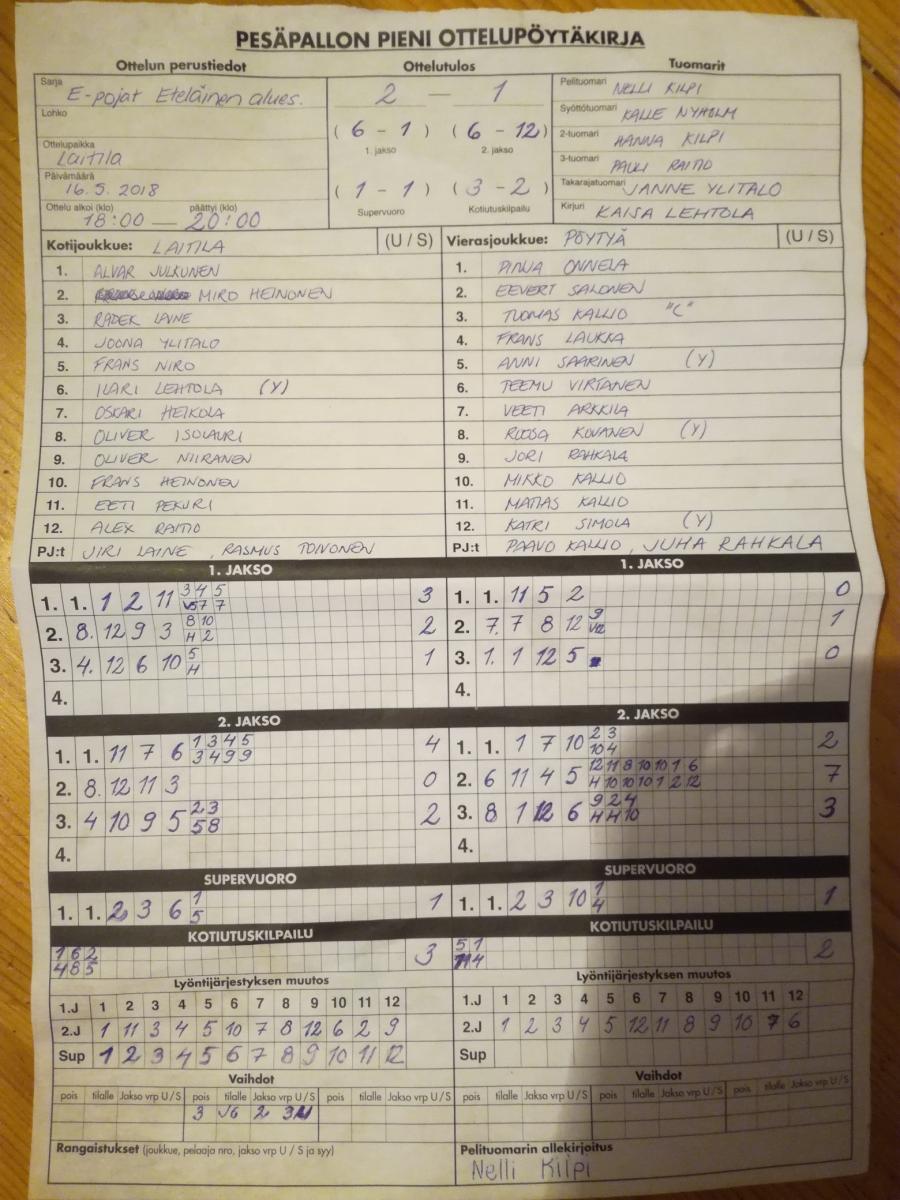 PESÄPALLON PIENI OTTELUPÖYTÄKIRJA
Ottelun perustiedot Ottelutulos Tuomarit
Sarja E-pojat Eteläinen alues.
Lohko
Ottelupaikka Laitila
Päivämäärä 16.5.2018
Ottelu alkoi (klo) 18:00 — päättyi (klo) 20:00
2 — 1
(6 - 1) (6 - 12)
1. jakso 2. jakso
(1 - 1) (3 - 2)
Supervuoro Kotiutuskilpailu
Pelituomari NELLI KILPI
Syöttötuomari KALLE NYHOLM
2-tuomari HANNA KILPI
3-tuomari PAULI RAITIO
Takarajatuomari JANNE YLITALO
Kirjuri KAISA LEHTOLA
Kotijoukkue: LAITILA (U / S)
1. ALVAR JULKUNEN
2. MIRO HEINONEN
3. RADEK LAINE
4. JOONA YLITALO
5. FRANS NIRO
6. ILARI LEHTOLA (Y)
7. OSKARI HEIKOLA
8. OLIVER ISOLAURI
9. OLIVER NIIRANEN
10. FRANS HEINONEN
11. EETI PEKURI
12. ALEX RAITIO
PJ:t JIRI LAINE, RASMUS TOIVONEN
Vierasjoukkue: PÖYTYÄ (U / S)
1. PINJA ONNELA
2. EEVERT SALONEN
3. TUOMAS KALLIO "C"
4. FRANS LAUKKA
5. ANNI SAARINEN (Y)
6. TEEMU VIRTANEN
7. VEETI ARKKILA
8. ROOSA KOVANEN (Y)
9. JORI RAHKALA
10. MIKKO KALLIO
11. MATIAS KALLIO
12. KATRI SIMOLA (Y)
PJ:t PAAVO KALLIO, JUHA RAHKALA
1. JAKSO
1. 1. 1 2 11 3 4 5 3
7 7
2. 8. 12 9 3 8 10 2
H 2
3. 4. 12 6 10 5 1
H
4.
1. JAKSO
1. 1. 11 5 2 0
2. 7. 7 8 12 9 1
3. 1. 1 12 5 0
4.
2. JAKSO
1. 1. 11 7 6 1 3 4 5 4
3 4 9 9
2. 8. 12 11 3 0
3. 4 10 9 5 2 3 2
5 8
4.
2. JAKSO
1. 1. 1 7 10 2 3 2
10 4
2. 6 11 4 5 12 11 8 10 10 1 6 7
H 10 10 10 1 2 12
3. 8 1 12 6 9 2 4 3
H H 10
4.
SUPERVUORO
1. 1. 2 3 6 1 1
5
SUPERVUORO
1. 1. 2 3 10 1 1
4
KOTIUTUSKILPAILU
1 6 2 3
4 8 5
KOTIUTUSKILPAILU
5 1 2
11 4
Lyöntijärjestyksen muutos
1.J 1 2 3 4 5 6 7 8 9 10 11 12
2.J 1 11 3 4 5 10 7 8 12 6 2 9
Sup 1 2 3 4 5 6 7 8 9 10 11 12
Lyöntijärjestyksen muutos
1.J 1 2 3 4 5 6 7 8 9 10 11 12
2.J 1 2 3 4 5 12 11 8 9 10 7 6
Sup
Vaihdot
pois tilalle Jakso vrp U / S pois tilalle Jakso vrp U / S pois tilalle Jakso vrp U / S
3 J6 2
Vaihdot
pois tilalle Jakso vrp U / S pois tilalle Jakso vrp U / S pois tilalle Jakso vrp U / S
Rangaistukset (joukkue, pelaaja nro, jakso vrp U / S ja syy)
Pelituomarin allekirjoitus
Nelli Kilpi